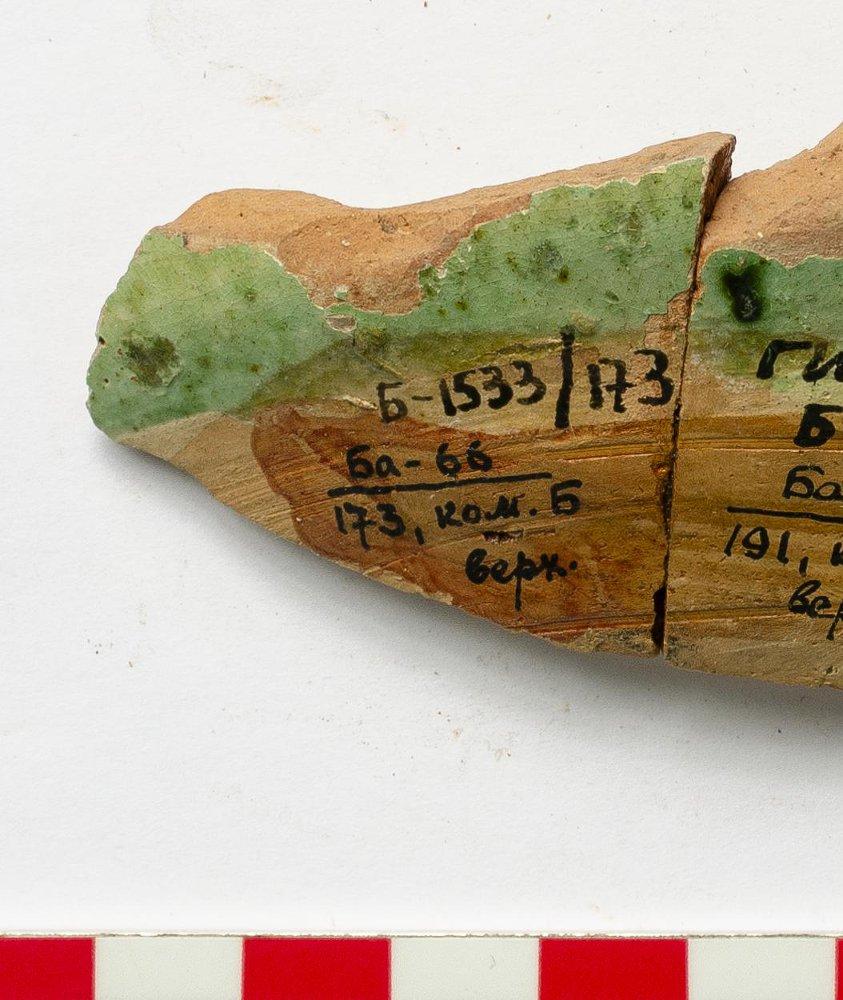 Б-1533/173
Ба-66
173, ком. Б
верх.
Б
Ба
191,